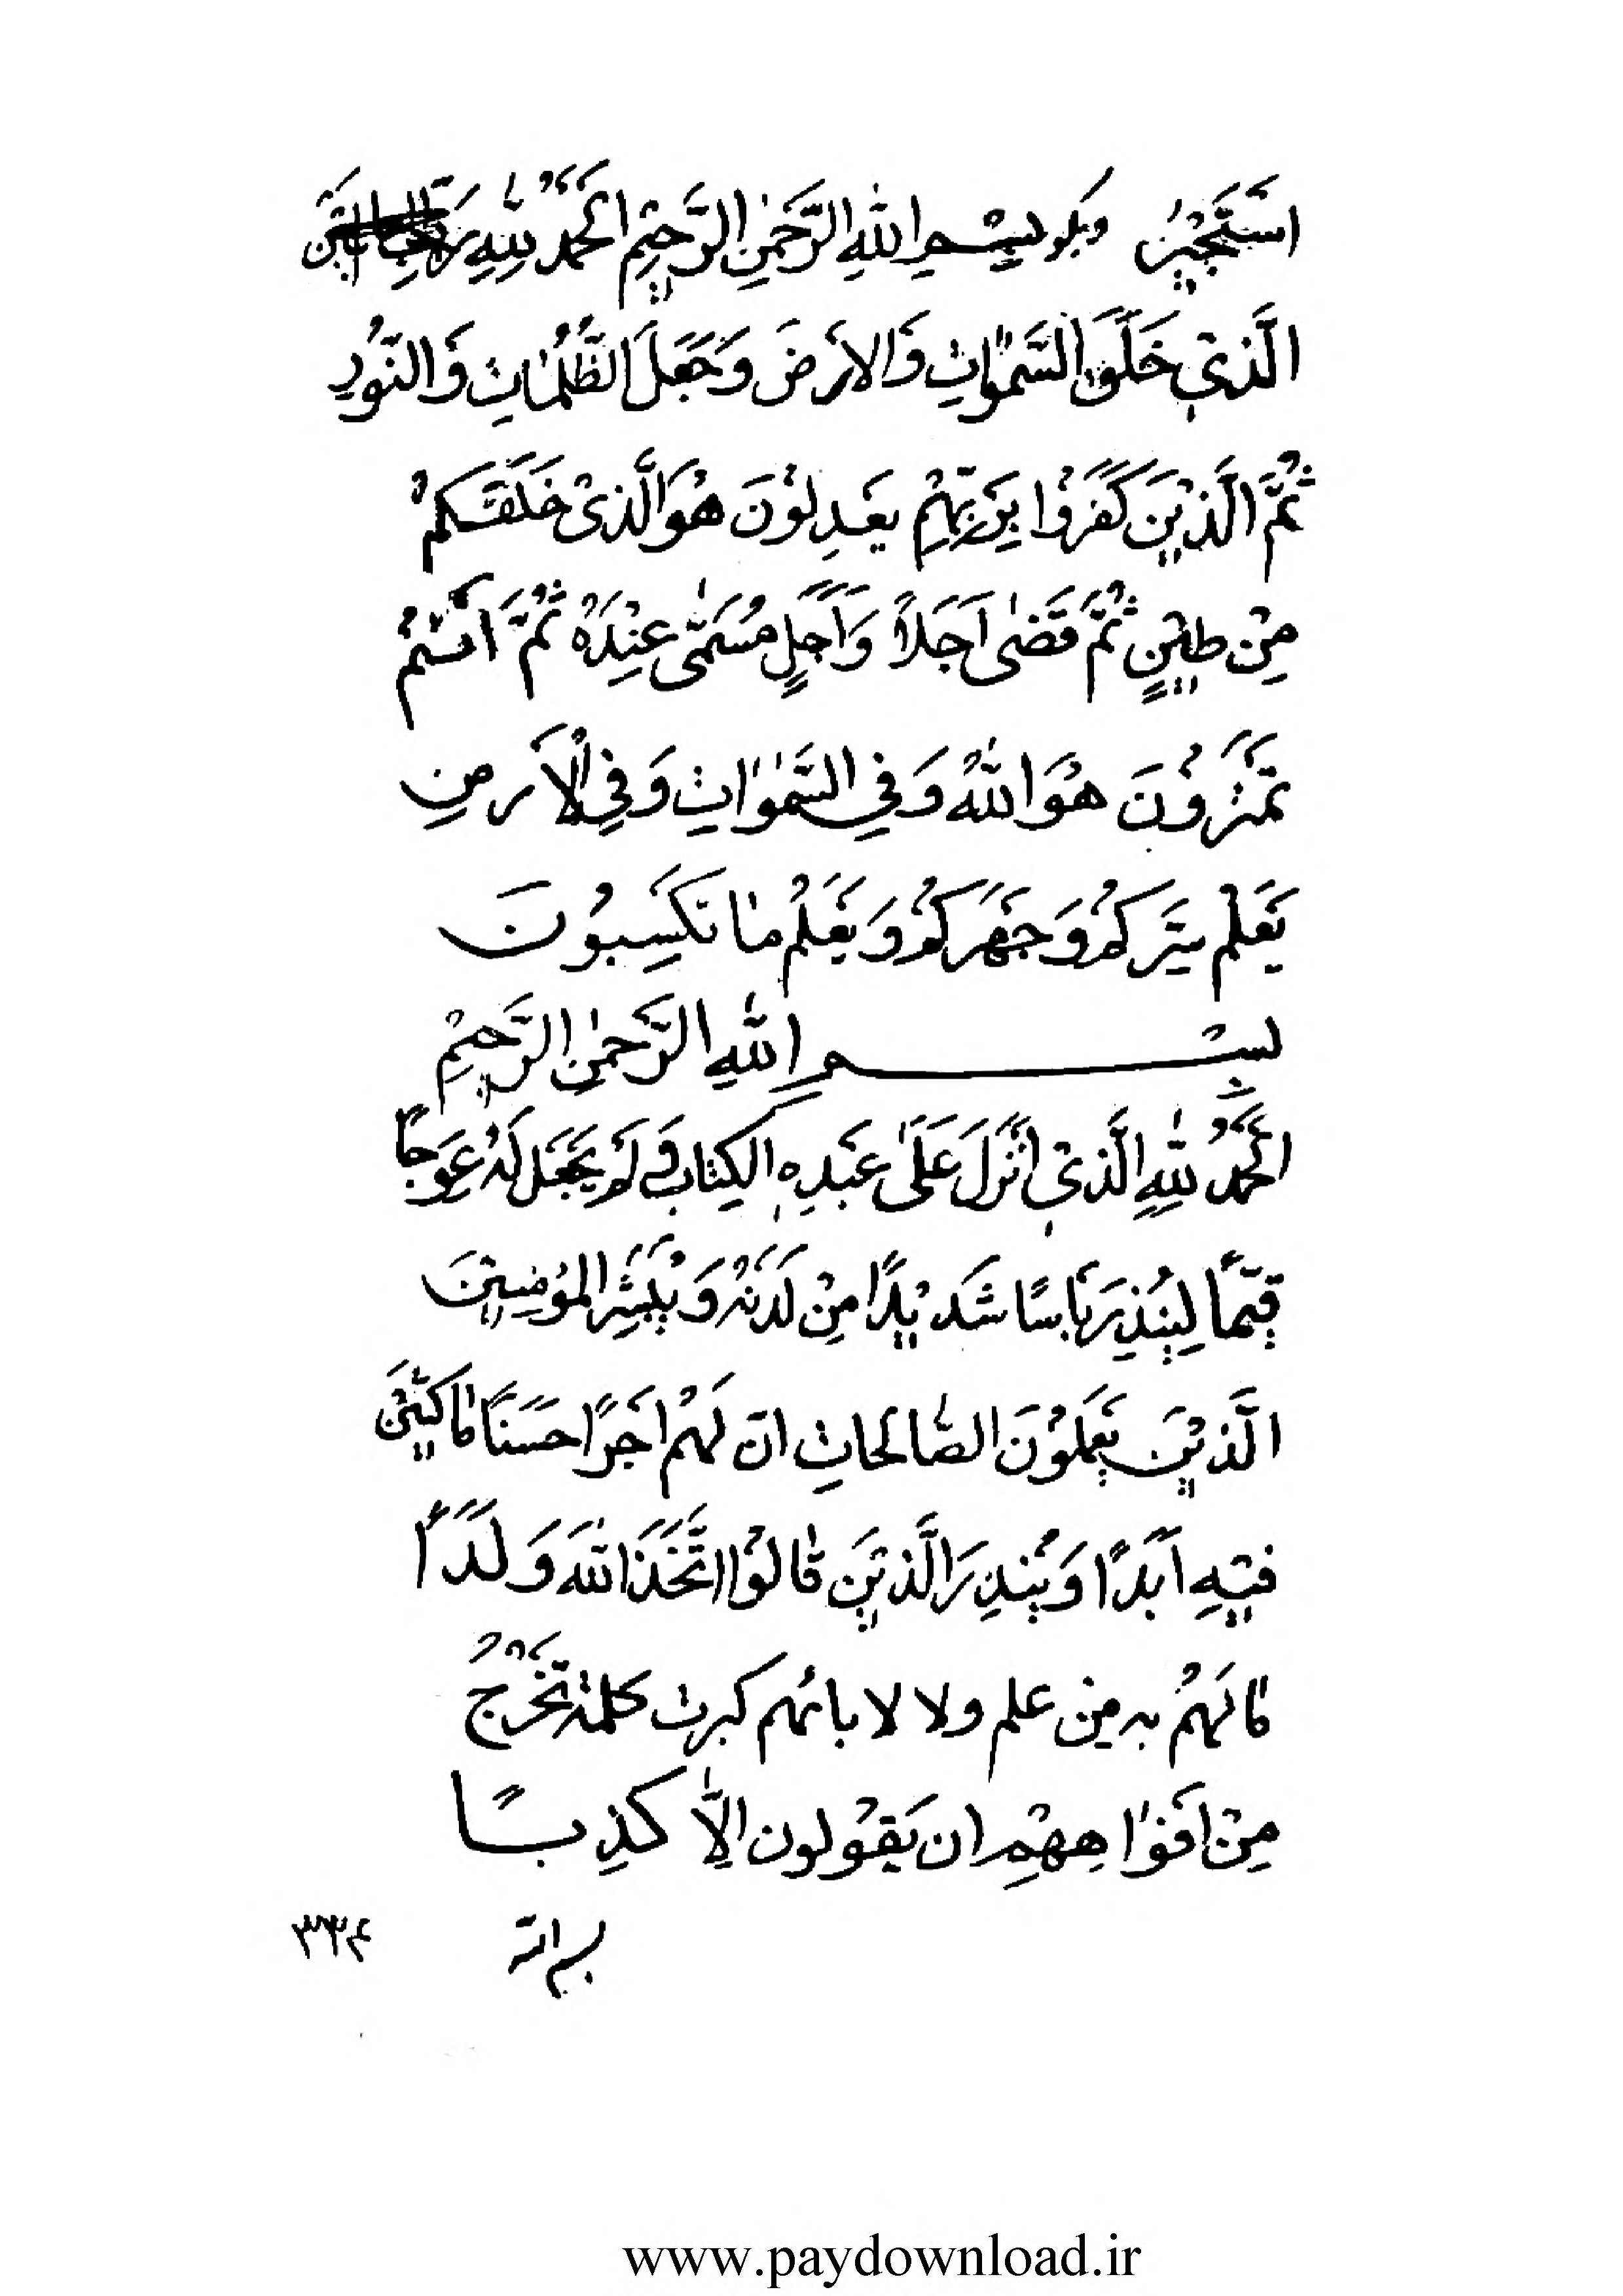 اَسْتَجِیْرُ وبگو بِسْمِ اللهِ الرَّحْمٰنِ الرَّحِیْمِ الْحَمْدُ لِلّٰهِ
الَّذِیْ خَلَقَ السَّمٰوٰاتِ وَالْاَرْضَ وَجَعَلَ الظُّلُمٰاتِ وَالنُّوْرِ
ثُمَّ الَّذِیْنَ كَفَرُوْا بِرَبِّهِمْ یَعْدِلُوْنَ هُوَ الَّذِیْ خَلَقَكُمْ
مِنْ طِیْنٍ ثُمَّ قَضٰى اَجَلاً وَاَجَلٍ مُسَمّٰى عِنْدَهُ ثُمَّ اَنْتُمْ
تَمْتَرُوْنَ هُوَ اللهُ وَفِی السَّمٰوٰاتِ وَفِی الْاَرضِ
یَعْلَمُ سِرَّكُمْ وَجَهْرَكُمْ وَیَعْلَمُ مٰا تَكْسِبُوْنَ
بِسْمِ اللهِ الرَّحْمٰنِ الرَّحِیْمِ
الْحَمْدُ لِلّٰهِ الَّذِیْ اَنْزَلَ عَلَىٰ عَبْدِهِ الْكِتَابَ وَ لَمْ یَجْعَلْ لَهُ عِوَجًا
قَیِّمًا لِیُنْذِرَ بَاسًا شَدِیْدًا مِنْ لَدُنْهُ وَیُبَشِّرَ الْمُؤْمِنِیْنَ
الَّذِیْنَ یَعْمَلُوْنَ الصّٰالِحَاتِ انّ لَهُمْ اَجْرًا حَسَنًا مٰاكِثِیْنَ
فِیْهِ اَبَدًا وَیُنْذِرَ الَّذِیْنَ قٰالُوْا اتَّخَذَ اللهُ وَلَدًا
مٰا لَهُمْ به مِنْ علم ولا لابائهم كبرت كلمة تَخْرُجُ
مِنْ اَفْوٰاهِهِمْ ان یَقُوْلون اِلّٰا كَذِبًا
۳۳۴
www.paydownload.ir